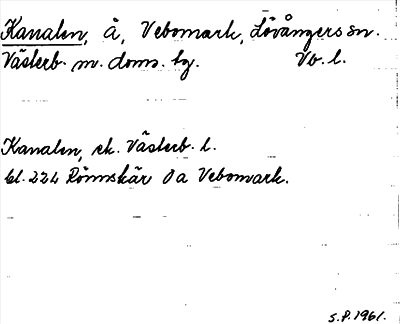 Kanalen, å, Vebomark, Lövångers sn.
Västerb. m. doms. tg. Vb. l.
Kanalen, ek. Västerb. l.
bl. 224 Rönnskär Oa Vebomark.
S.P. 1961.